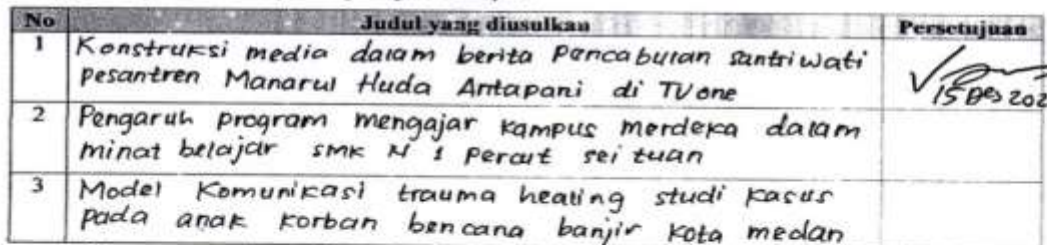 No Judul yang diusulkan Persetujuan
1 Konstruksi media dalam berita Pencabulan santriwati
pesantren Manarul Huda Antapani di TVone
15 Des 202
2 Pengaruh program mengajar kampus merdeka dalam
minat belajar smk N 1 Percut sei tuan
3 Model Komunikasi trauma healing studi kasus
pada anak korban bencana banjir kota medan